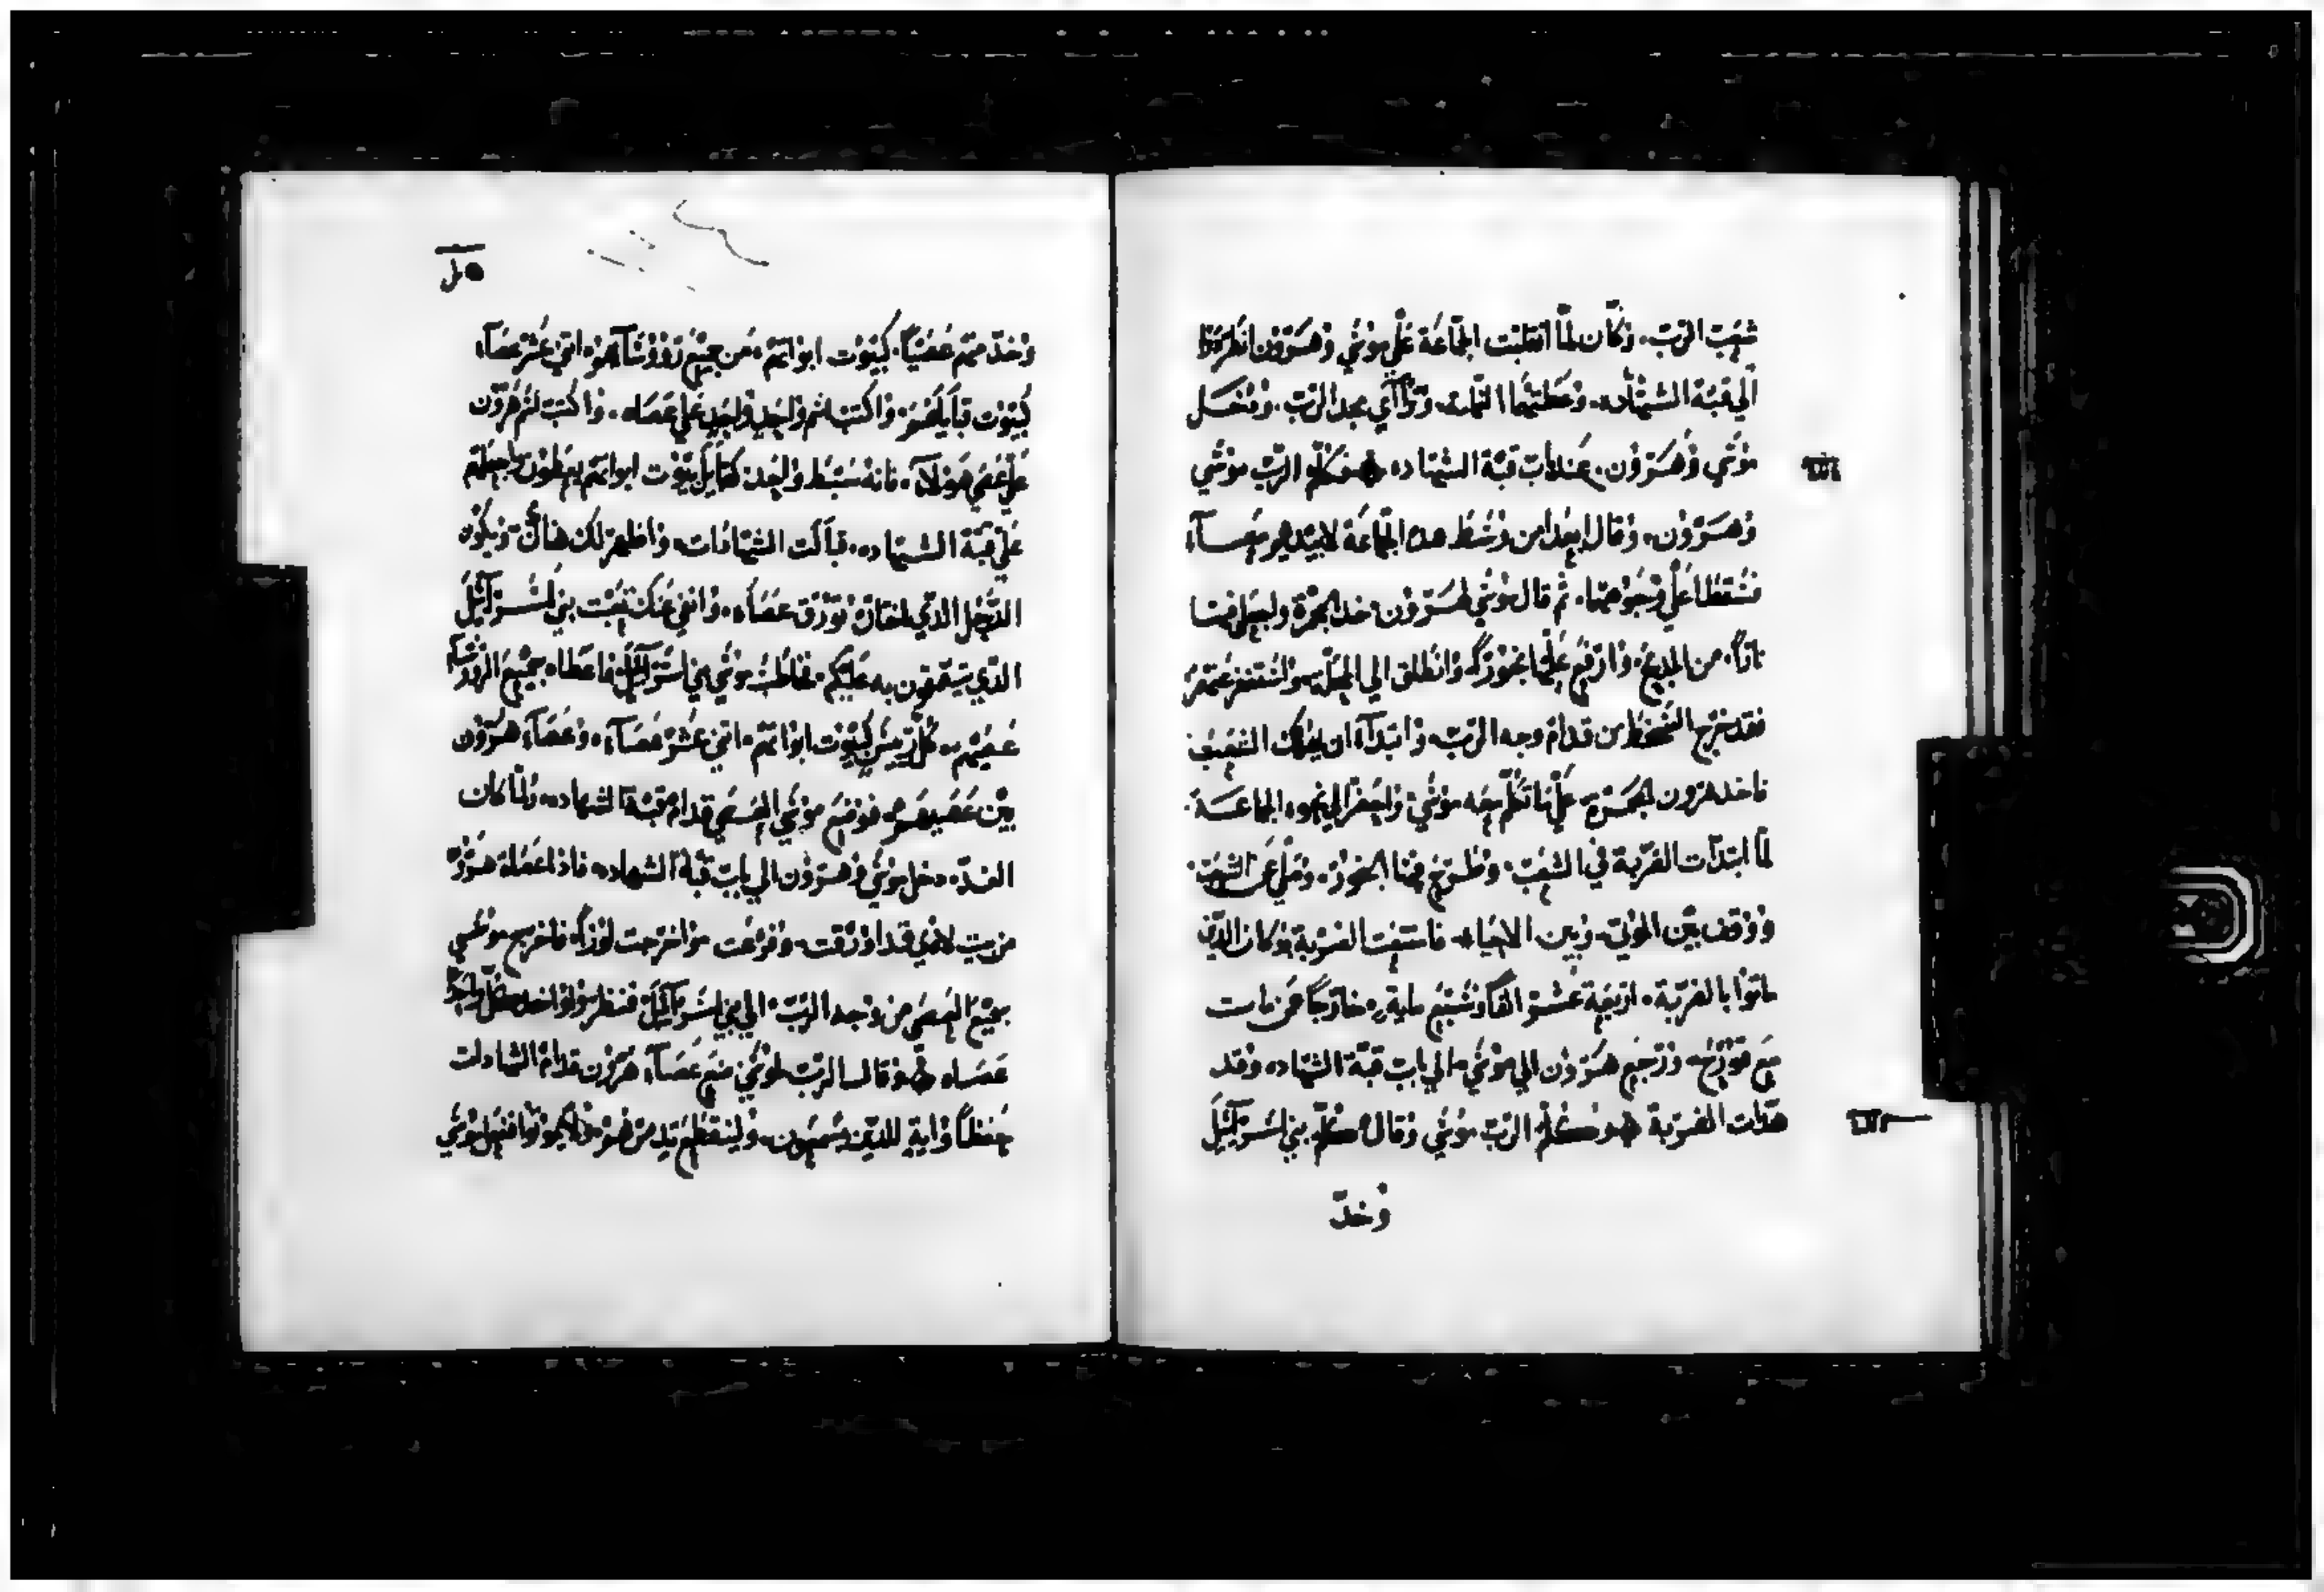 شعب الرب. وكان لما انقلبت الجماعة علي موسي وهرون انطرقا
الي قبة الشهاده. وغطتهما الغمامه. وترااي مجد الرب. ودخل
موسي وهرون. عند باب قبة الشهاده فكلم الرب موسي
وهرون. وقال ابعدا من وسط هده الجماعة لابيدهم
فسقطا علي وجوههما. ثم قال موسي لهرون خد المجمرة واجعل فيها
نارا. من المدبح. وارفع عليها بخورا وانطلق الي المحلة واستغفر عنهم
فقد خرج السخط من قدام وجه الرب. وابتدا ان يهلك الشعب
فاخد هرون علي ما تكلم به موسي واحضر الي الجماعة
لما ابتدات الضربة في الشعب. وطرح فيها البخور. وصلي عن الشعب
ووقف بين الموتي. وبين الاحياء فاستعفت الضربة وكان الدين
ماتوا بالضربة. اربعة عشر الفا وسبع ماية خارجا عن مات
مع قورح. ورجع هرون الي موسي الي باب قبة الشهاده وقد
هدات الضربة وكلم الرب موسي وقال كلم بني اسراييل
وخد
وخد منهم عصيا. كبيوت ابواتهم. من جميع روسآهم. اتني عشر عصاه
كبيوت قبايلهم واكتب اسم واحد واحد علي عصاه. واكتب اسم هرون
علي عصي هولآ. فانه سبط واحد كقبايل بيوت ابواتهم يعطون واجعلهم
علي قبة الشهاده. قبالت الشهادات. واظهر لك هناك ويكون
الرجل الذي اختاره تورق عصاه. وانفي عنك تعبت بني اسراييل
الدي يتقمقمون به عليكم. فخاطب موسي بني اسراييل فاعطاه جميع الروساكم
عصيهم كل رييس كبيوت ابواتهم. اتني عشر عصاه. وعصاه هرون
بين عصيهم فوضع موسي العصي قدام قبة الشهاده ولما كان
الغد. دخل موسي وهرون الي باب قبة الشهاده فاذا عصاة هرون
من بيت لاوي قد اورقت. وفرعت واخرجت لوزا. فاخرج موسي
جميع العصي من وجه الرب. الي بني اسراييل فنظروا واخد كل واحد
عصاه وقال الرب لموسي ضع عصاه هرون قدام الشهادات
حفظا واية للدين يسمعون. ولينقطع تدمرهم ولا يموتوا ففعل موسي